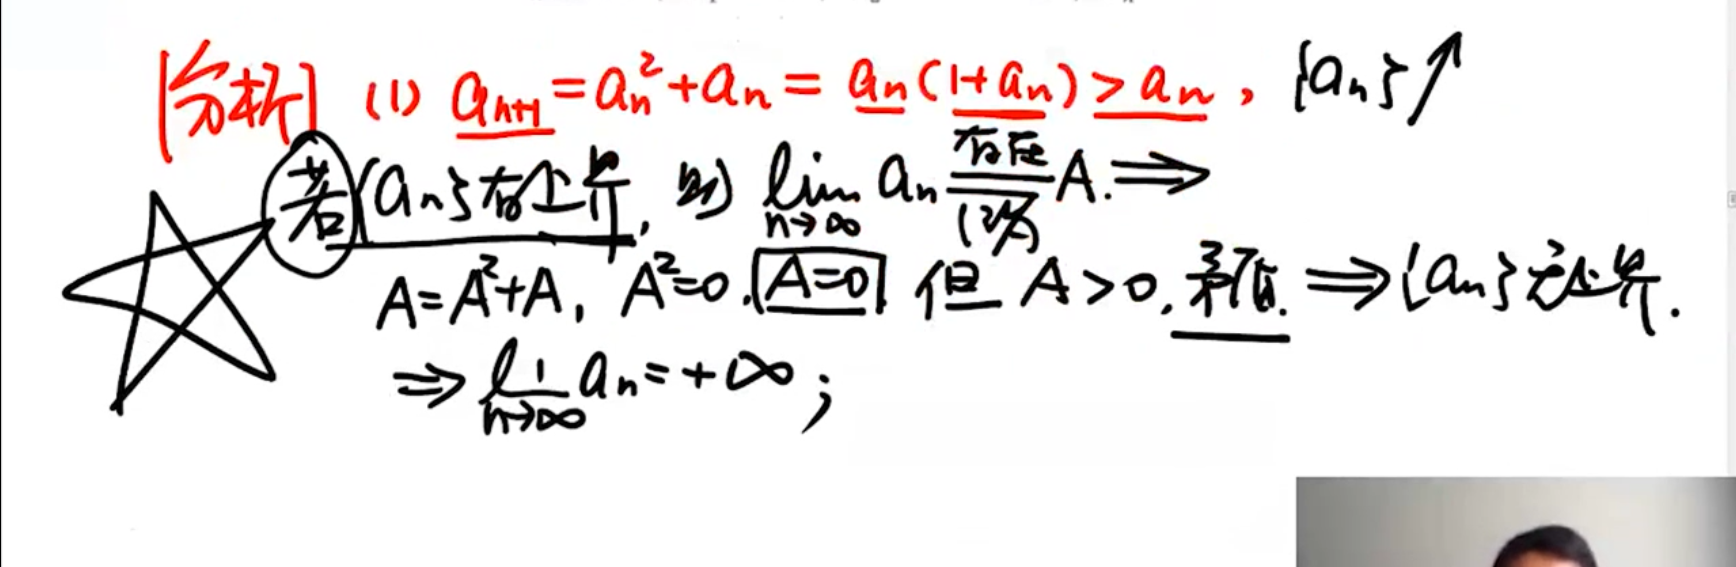 [分析] (1) aₙ₊₁ = aₙ² + aₙ = aₙ(1+aₙ) > aₙ, {aₙ}↗
若{aₙ}有上界, 则 lim n→∞ aₙ 存在 = (记为) A. ⟹
A=A²+A, A²=0. A=0 但 A>0, 矛盾. ⟹ {aₙ}无上界.
⟹ lim n→∞ aₙ = +∞;